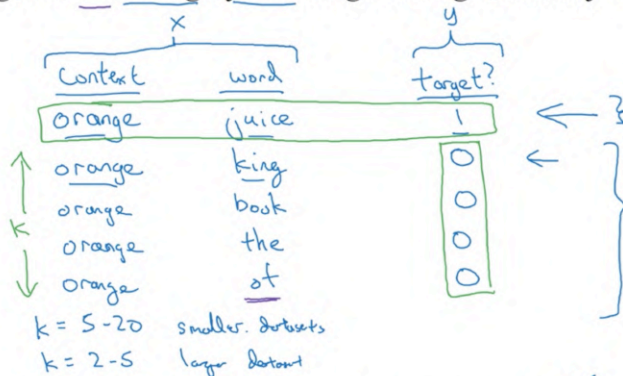 x y
Context word target?
orange juice 1
orange king 0
k orange book 0
orange the 0
orange of 0
k = 5-20 smaller datasets
k = 2-5 larger dataset